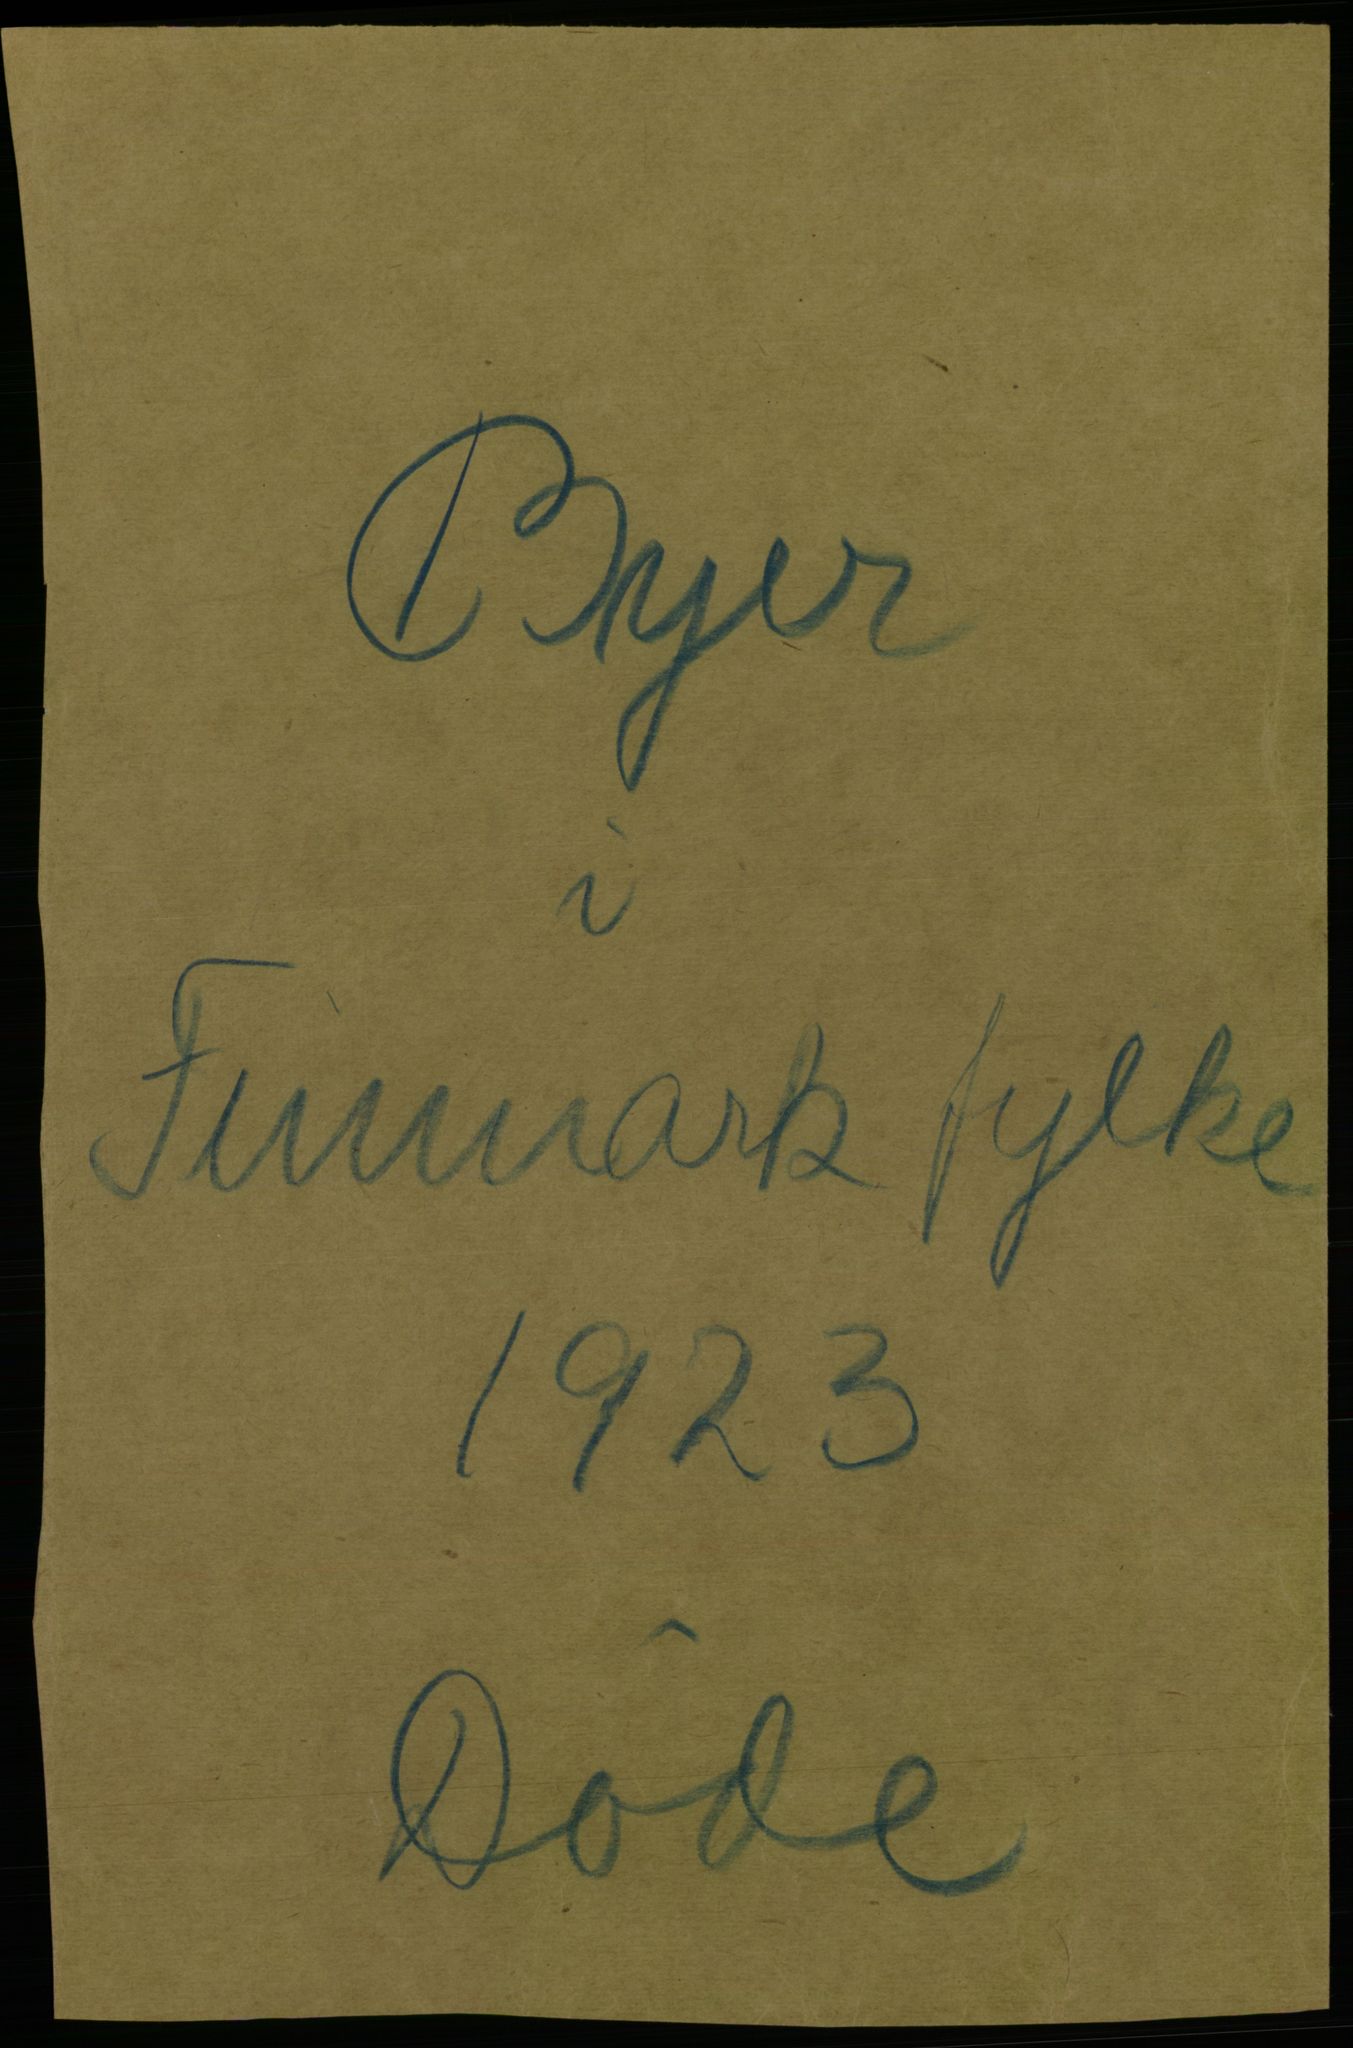 Byer
i
Finmark fylke
1923
Döde